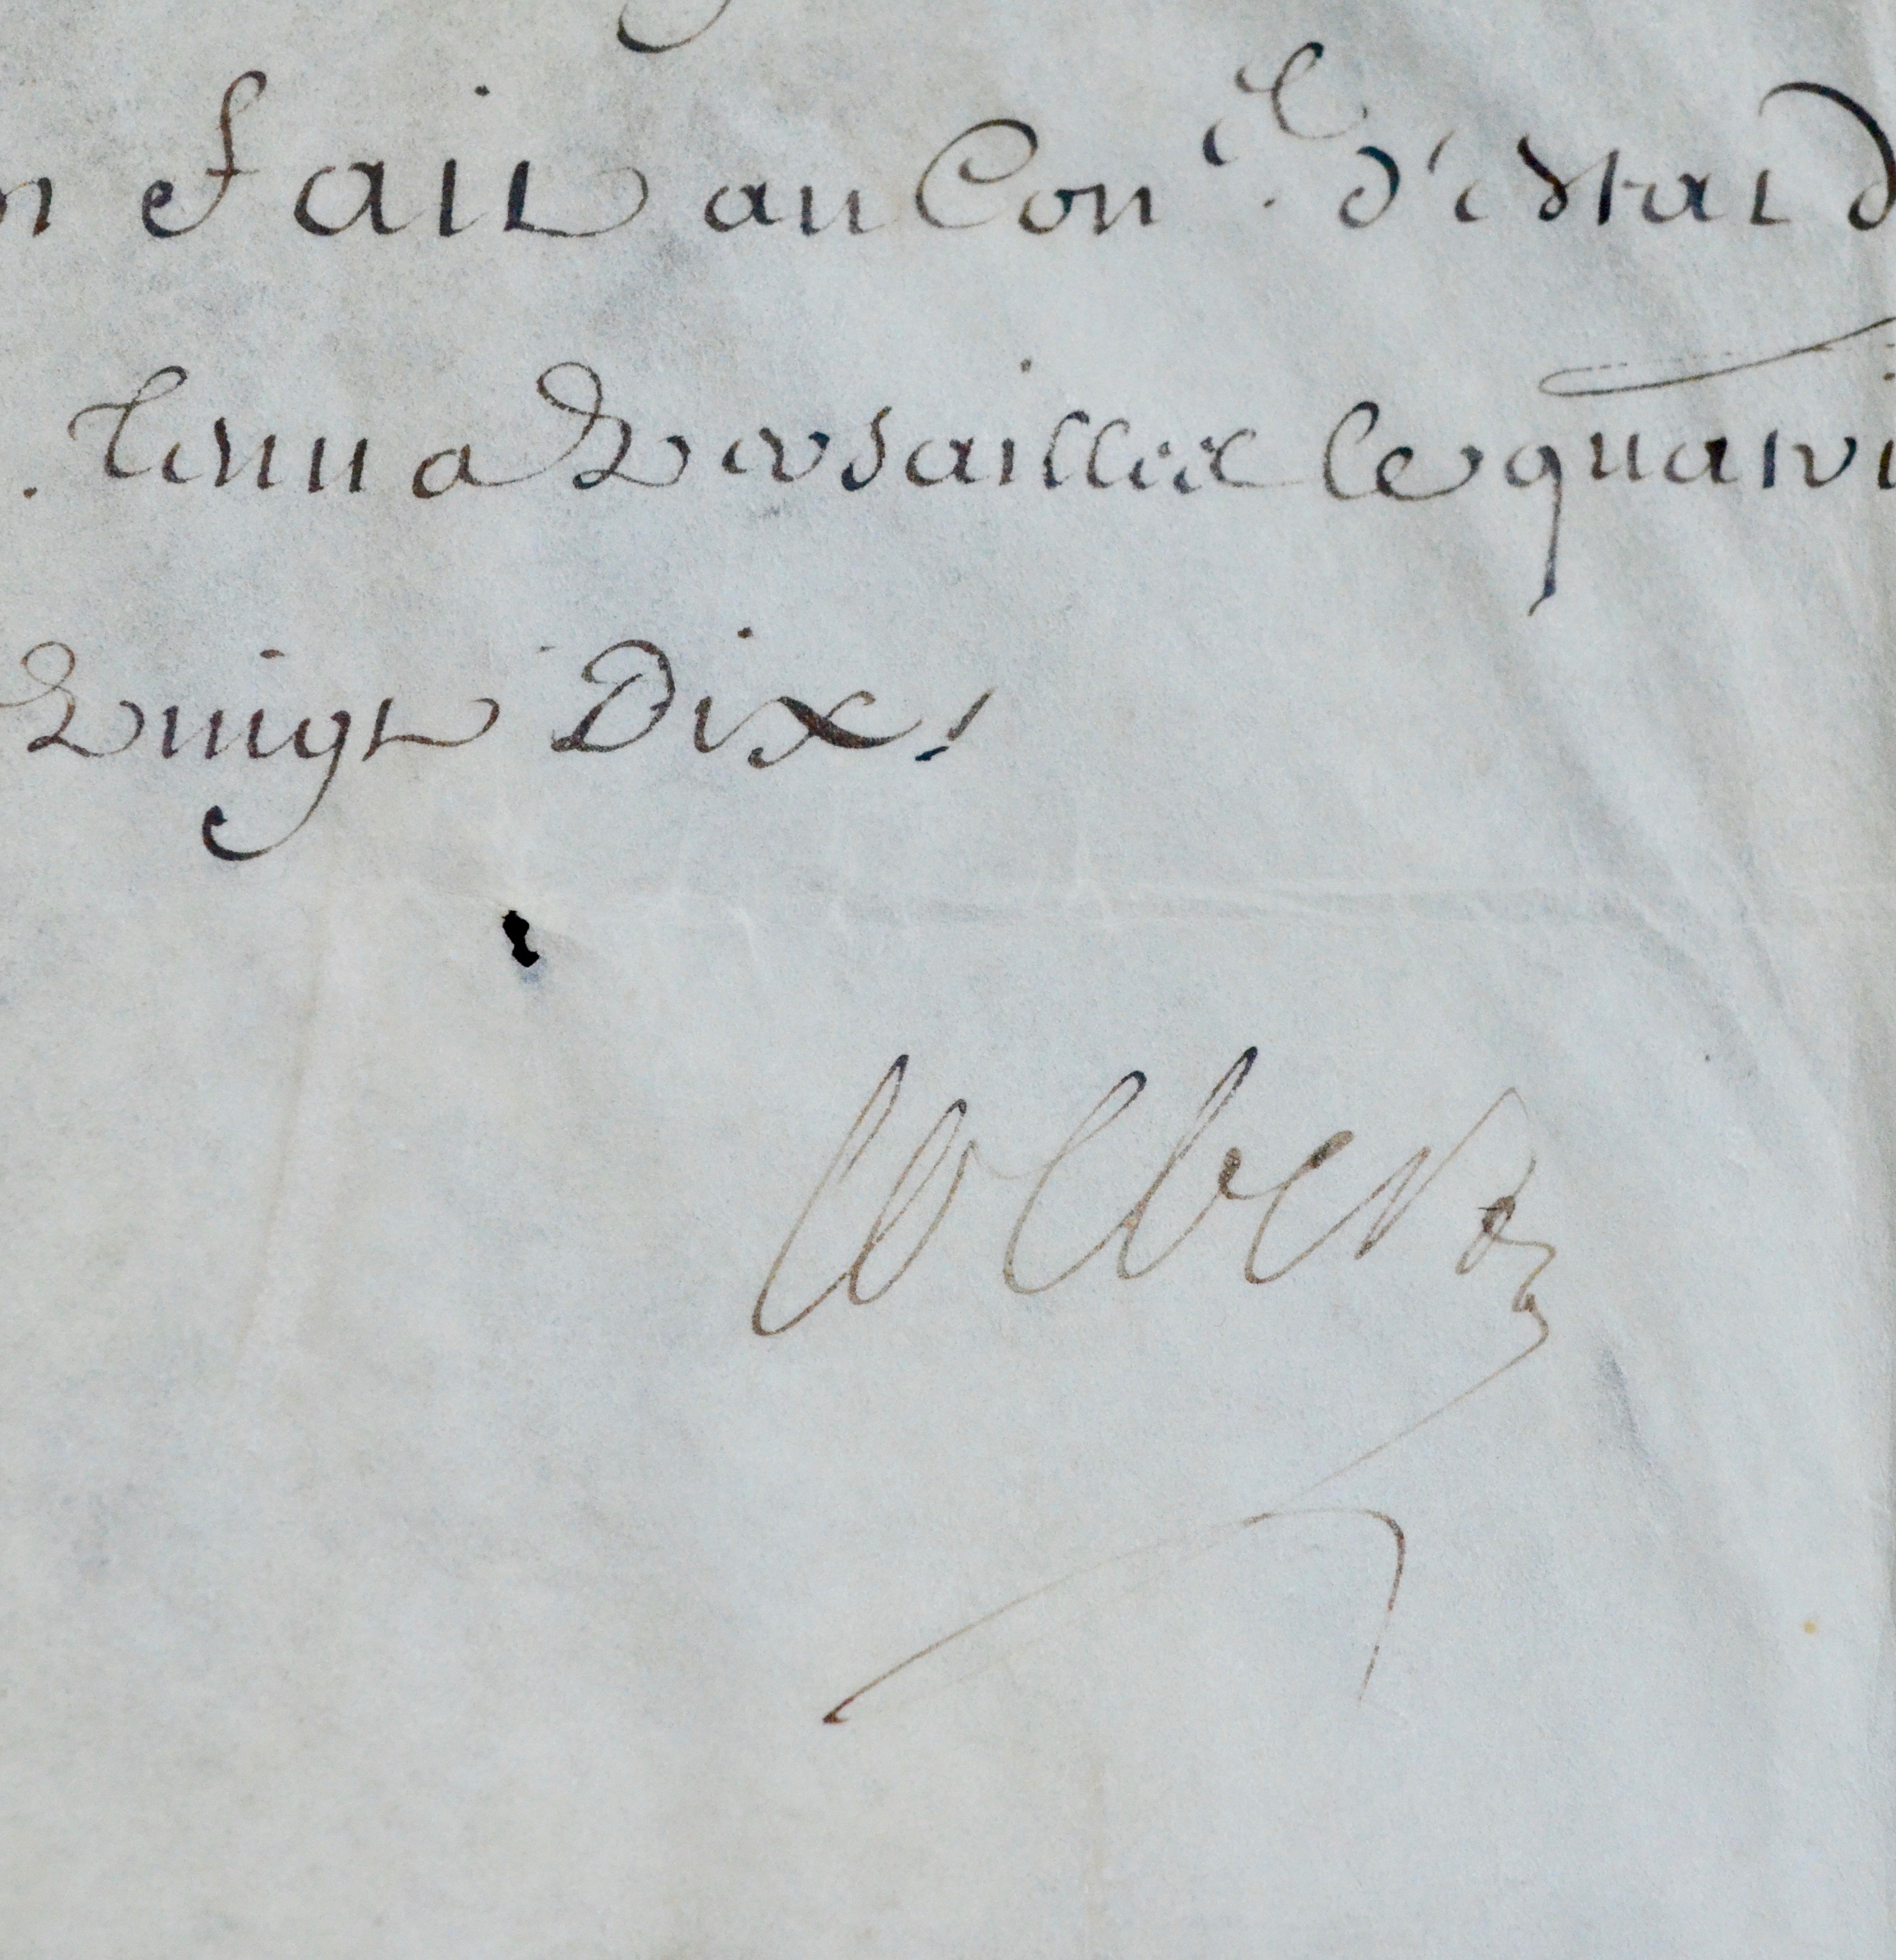 n fait au Con.el d'estat d
. Tenu a Versailles le quatri
Vingt Dix.
Colbert